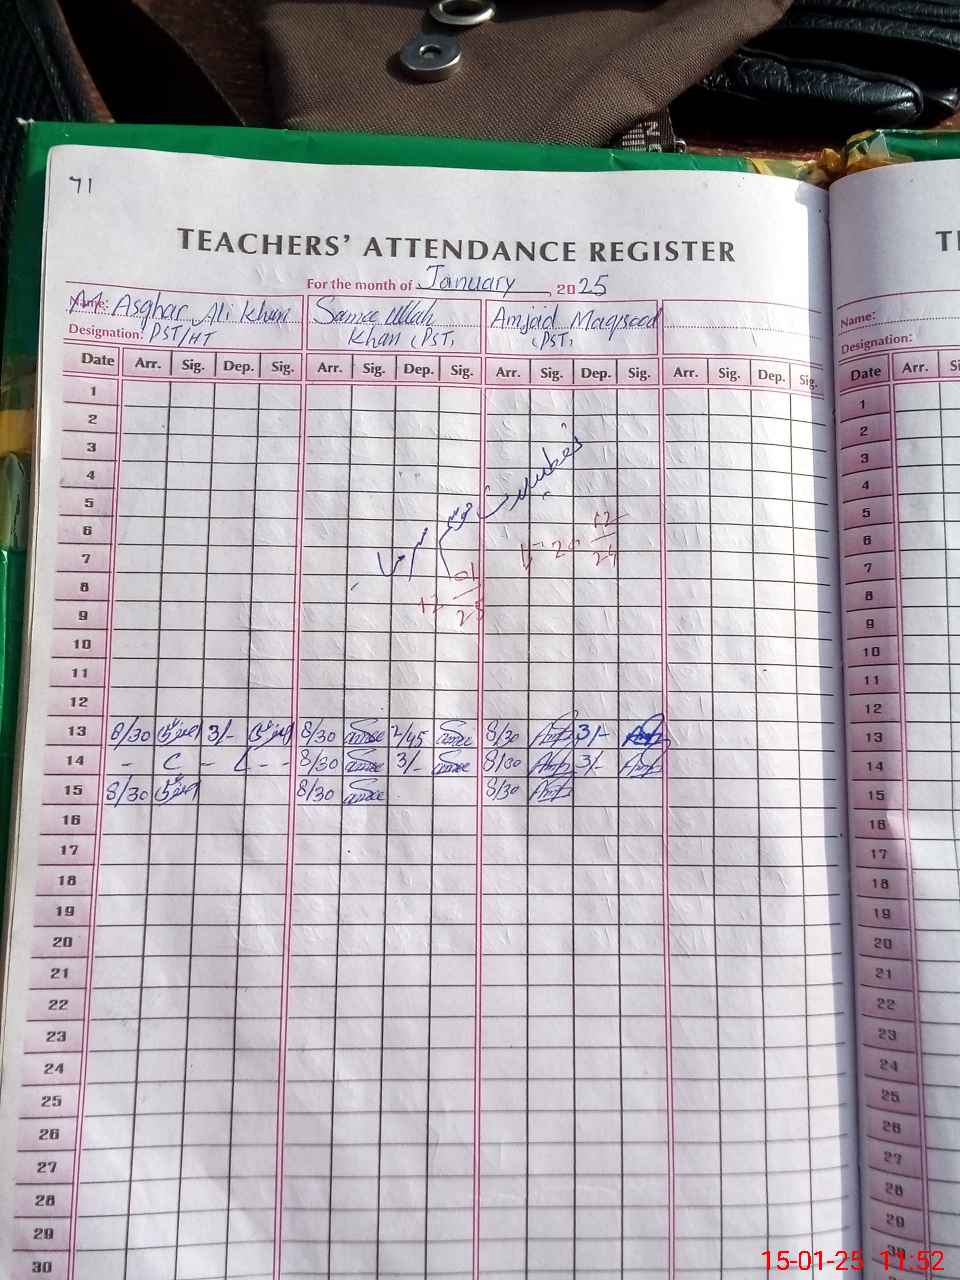 71
TEACHERS' ATTENDANCE REGISTER
For the month of January, 2025
Name: M. Asghar Ali Khan Samee Ullah Amjad Maqsood
Designation: PST/HT Khan (PST) (PST)
Date Arr. Sig. Dep. Sig. Arr. Sig. Dep. Sig. Arr. Sig. Dep. Sig. Arr. Sig. Dep. Sig.
1
2
3
4
5
6
7
8
9
10
11
12
موسم سرما
20 12/24
12 01/25
13 8/30 3/- 8/30 Samee 2/45 Samee 8/30 3/-
14 - C - L - - 8/30 Samee 3/- Samee 8/30 3/-
15 8/30 8/30 Samee 8/30
16
17
18
19
20
21
22
23
24
25
26
27
28
29
30
Name:
Designation:
Date Arr.
1
2
3
4
5
6
7
8
9
10
11
12
13
14
15
16
17
18
19
20
21
22
23
24
25
26
27
28
29
30
15-01-25 11:52